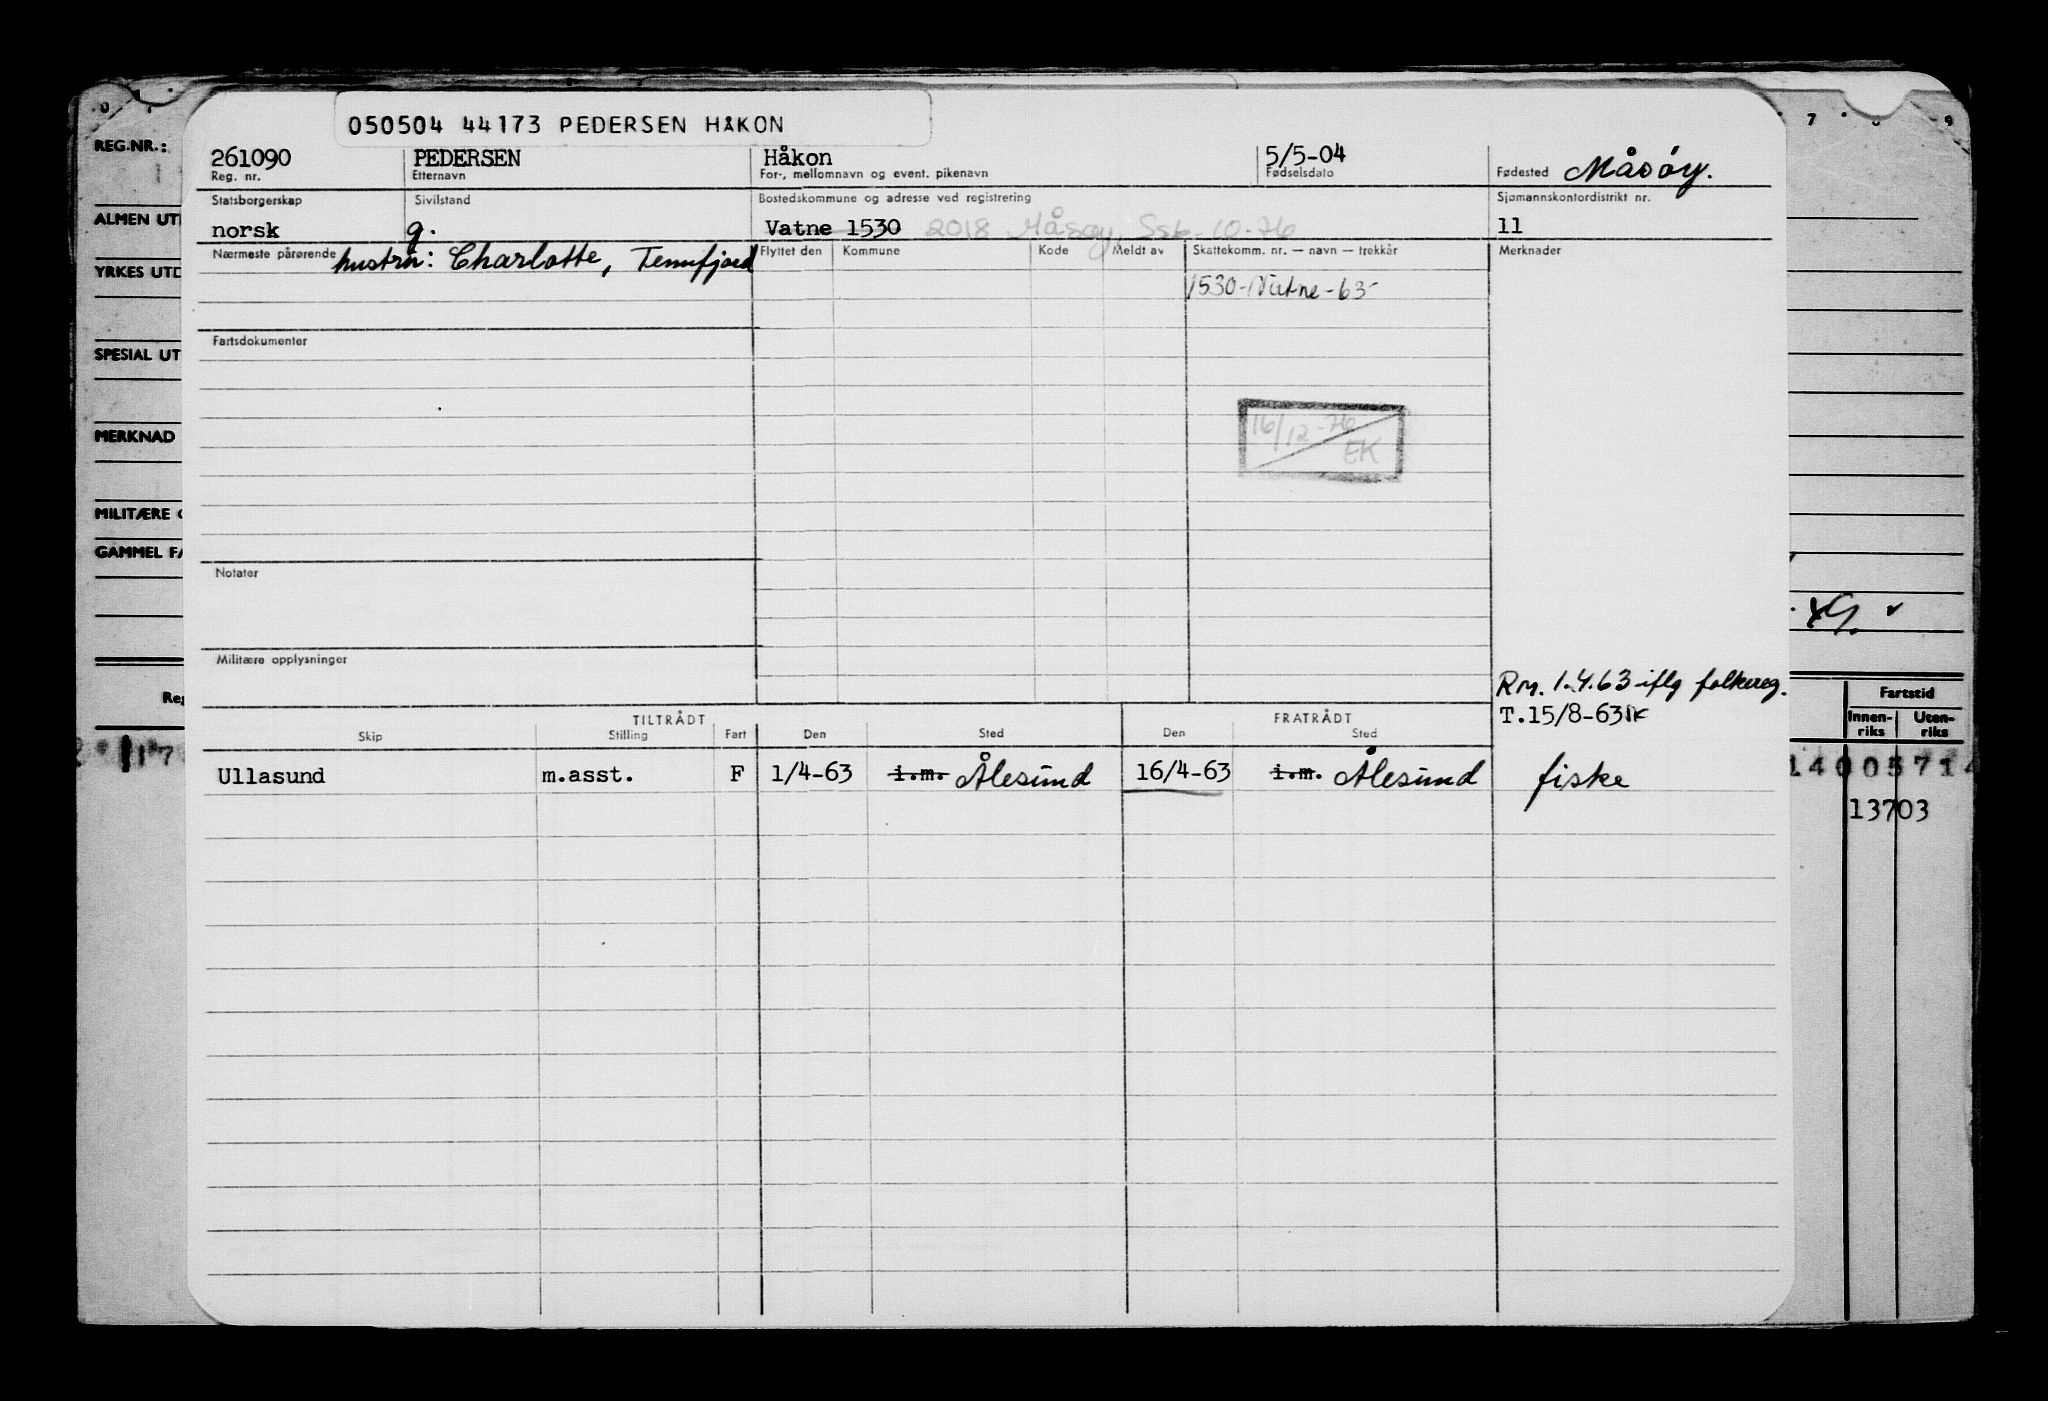 050504 44173 PEDERSEN HÅKON
REG.NR.:
261090 PEDERSEN Håkon 5/5-04 Måsöy.
Reg. nr. Etternavn For-, mellomnavn og event. pikenavn Fødselsdato Fødested
Statsborgerskap Sivilstand Bostedskommune og adresse ved registrering Sjømannskontordistrikt nr.
norsk g. Vatne 1530 2018 Måsøy, Ssk-10-76 11
Nærmeste pårørende hustru: Charlotte, Tennfjord Flyttet den Kommune Kode Meldt av Skattekomm. nr. — navn — trekkår Merknader
1530-Vatne-63-
Fartsdokumenter
16/12-76
EK
Notater
Militære opplysninger
Rm. 1.4.63 iflg folkereg.
T.15/8-63
TILTRÅDT FRATRÅDT
Skip Stilling Fart Den Sted Den Sted
Ullasund m.asst. F 1/4-63 i.m. Ålesund 16/4-63 i.m. Ålesund fiske
ALMEN UT
YRKES UTD
SPESIAL UT
MERKNAD
MILITÆRE
GAMMEL FA
Reg
7 9
Fartstid
Innen-riks Uten-riks
14005714
13703